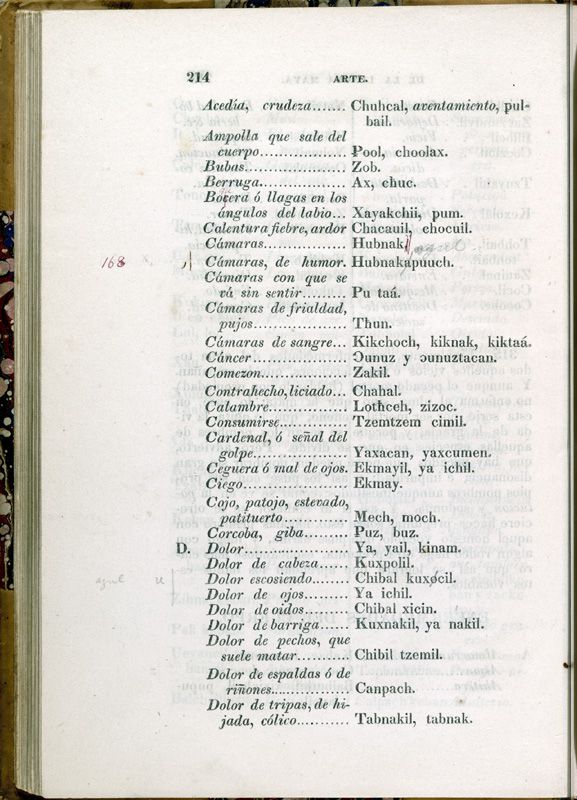 214 ARTE.
Acedía, crudeza....... Chuhcal, aventamiento, pul-
bail.
Ampolla que sale del
cuerpo................. Pool, choolax.
Bubas.................. Zob.
Berruga................. Ax, chuc.
Bocera ó llagas en los
ángulos del labio... Xayakchii, pum.
Calentura fiebre, ardor Chacauil, chocuil.
Cámaras................ Hubnak,
168 Cámaras, de humor. Hubnakapuuch.
Cámaras con que se
vá sin sentir......... Pu taá.
Cámaras de frialdad,
pujos................... Thun.
Cámaras de sangre... Kikchoch, kiknak, kiktaá.
Cáncer .................. Ɔunuz y ɔunuztacan.
Comezon................ Zakil.
Contrahecho, liciado... Chahal.
Calambre............... Lothceh, zizoc.
Consumirse............. Tzemtzem cimil.
Cardenal, ó señal del
golpe................... Yaxacan, yaxcumen.
Ceguera ó mal de ojos. Ekmayil, ya ichil.
Ciego.................... Ekmay.
Cojo, patojo, estevado,
patituerto............ Mech, moch.
Corcoba, giba......... Puz, buz.
D. Dolor.................... Ya, yail, kinam.
Dolor de cabeza...... Kuxpolil.
Dolor escosiendo........ Chibal kuxocil.
Dolor de ojos.......... Ya ichil.
Dolor de oidos......... Chibal xicin.
Dolor de barriga...... Kuxnakil, ya nakil.
Dolor de pechos, que
suele matar.......... Chibil tzemil.
Dolor de espaldas ó de
riñones................ Canpach.
Dolor de tripas, de hi-
jada, cólico........... Tabnakil, tabnak.